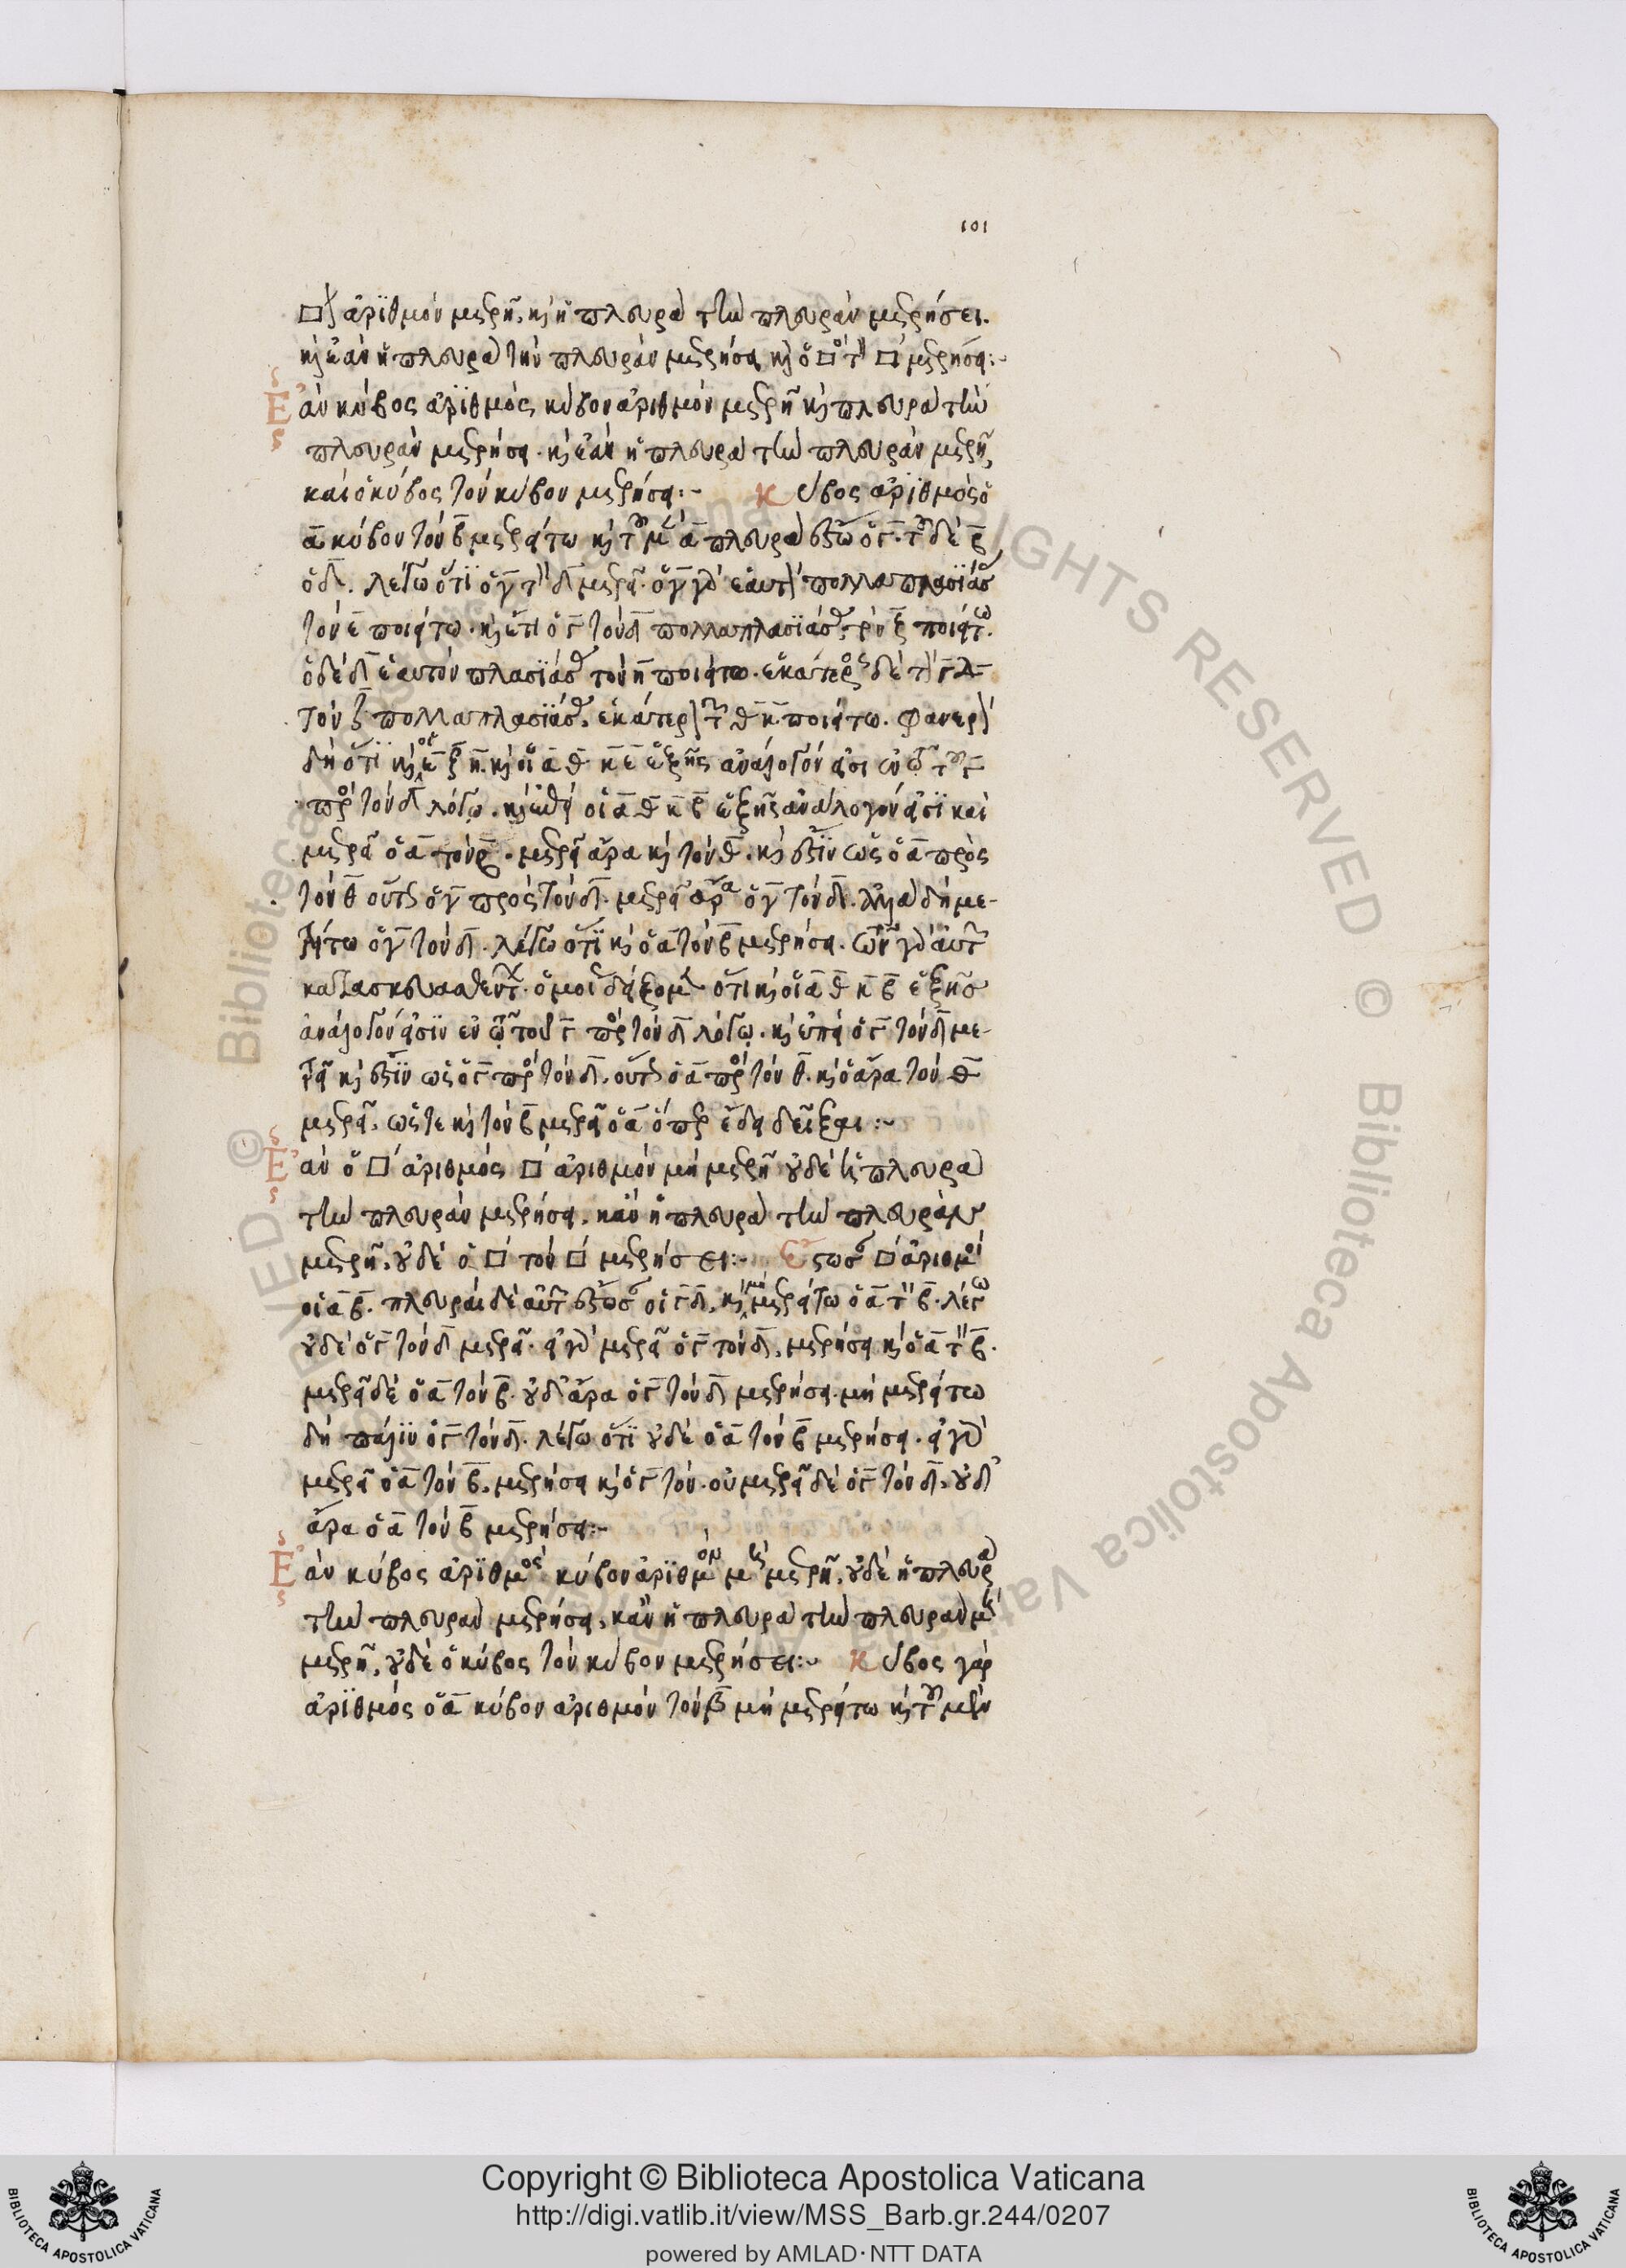 101
□ν ἀριθμὸν μετρῆ, κὶ ἡ πλευρὰ τὴν πλευρὰν μετρήσει.
κὶ ἐὰν ἡ πλευρὰ τὴν πλευρὰν μετρήσῃ κὶ ὁ □ος τὸν □ μετρήσει:~
Ἐὰν κύβος ἀριθμὸς κύβον ἀριθμὸν μετρῆ κὶ πλευρὰ τὴν
πλευρὰν μετρήσει. κὶ ἐὰν ἡ πλευρὰ τὴν πλευρὰν μετρῆ,
καὶ ὁ κύβος τὸν κύβον μετρήσει:~ Κύβος ἀριθμὸς ὁ
α κύβον τὸν β μετρείτω κὶ τοῦ μὲν α πλευρὰ ἔστω ὁ γ. τοῦ δὲ β
ὁ δ. λέγω ὅτι ὁ γ τὸν δ μετρεῖ. ὁ γ γὰρ ἑαυτὸν πολλαπλασιάσας
τὸν ε ποιείτω. κὶ ἔτι ὁ γ τὸν δ πολλαπλασιάσας τὸν ζ ποιείτω.
ὁ δὲ δ ἑαυτὸν πλασιάσας τὸν η ποιείτω. ἑκάτερος δὲ τῶν γ δ
τὸν ζ πολλαπλασιάσας, ἑκάτερον τῶν θ κ ποιείτω. φανερὸν
δὴ ὅτι κὶ οἱ ε ζ η. κὶ οἱ α θ κ ε ἑξῆς ἀνάλογόν εἰσι ἐν τῶ τοῦ γ
πρὸς τὸν δ λόγω. κὶ ἐπεὶ οἱ α θ κ β ἑξῆς ἀνάλογόν εἰσι καὶ
μετρεῖ ὁ α τὸν β. μετρεῖ ἄρα κὶ τὸν θ. κὶ ἔστιν ὡς ὁ α πρὸς
τὸν θ οὕτως ὁ γ πρὸς τὸν δ. μετρεῖ ἄρα ὁ γ τὸν δ. ἀλλὰ δὴ με-
τρείτω ὁ γ τὸν δ. λέγω ὅτι κὶ ὁ α τὸν β μετρήσει. τῶν γὰρ αὐτῶν
κατασκευασθέντων ὁμοίως δείξομεν ὅτι κὶ οἱ α θ κ β ἑξῆς
ἀνάλογόν εἰσιν ἐν τῶ τοῦ γ πρὸς τὸν δ λόγω. κὶ ἐπεὶ ὁ γ τὸν δ με-
τρεῖ κὶ ἔστιν ὡς ὁ γ πρὸς τὸν δ, οὕτως ὁ α πρὸς τὸν θ. κὶ ὁ ἄρα τὸν θ
μετρεῖ, ὥστε κὶ τὸν β μετρεῖ ὁ α ὅπερ ἔδει δεῖξαι:~
Ἐὰν ὁ □ ἀριθμὸς □ ἀριθμὸν μὴ μετρῆ οὐδὲ ἡ πλευρὰ
τὴν πλευρὰν μετρήσει, κἂν ἡ πλευρὰ τὴν πλευρὰν
μετρῆ, οὐδὲ ὁ □ τὸν □ μετρήσει:~ Ἔστωσαν □ ἀριθμοὶ
οἱ α β. πλευραὶ δὲ αὐτῶν ἔστωσαν οἱ γ δ, κὶ μὴ μετρείτω ὁ α τὸν β. λέγω
οὐδὲ ὁ γ τὸν δ μετρεῖ. εἰ γὰρ μετρεῖ ὁ γ τὸν δ, μετρήσει κὶ ὁ α τὸν β.
μετρεῖ δὲ ὁ α τὸν β. οὐδ' ἄρα ὁ γ τὸν δ μετρήσει. μὴ μετρείτω
δὴ πάλιν ὁ γ τὸν δ. λέγω ὅτι οὐδὲ ὁ α τὸν β μετρήσει. εἰ γὰρ
μετρεῖ ὁ α τὸν β, μετρήσει κὶ ὁ γ τὸν. οὐ μετρεῖ δὲ ὁ γ τὸν δ, οὐδ'
ἄρα ὁ α τὸν β μετρήσει:~
Ἐὰν κύβος ἀριθμὸς κύβον ἀριθμὸν μὴ μετρῆ, οὐδὲ ἡ πλευρὰ
τὴν πλευρὰν μετρήσει, κἂν ἡ πλευρὰ τὴν πλευρὰν μὴ
μετρῆ, οὐδὲ ὁ κύβος τὸν κύβον μετρήσει:~ Κύβος γὰρ
ἀριθμὸς ὁ α κύβον ἀριθμὸν τὸν β μὴ μετρείτω κὶ τοῦ μὲν
Copyright © Biblioteca Apostolica Vaticana
http://digi.vatlib.it/view/MSS_Barb.gr.244/0207
powered by AMLAD·NTT DATA